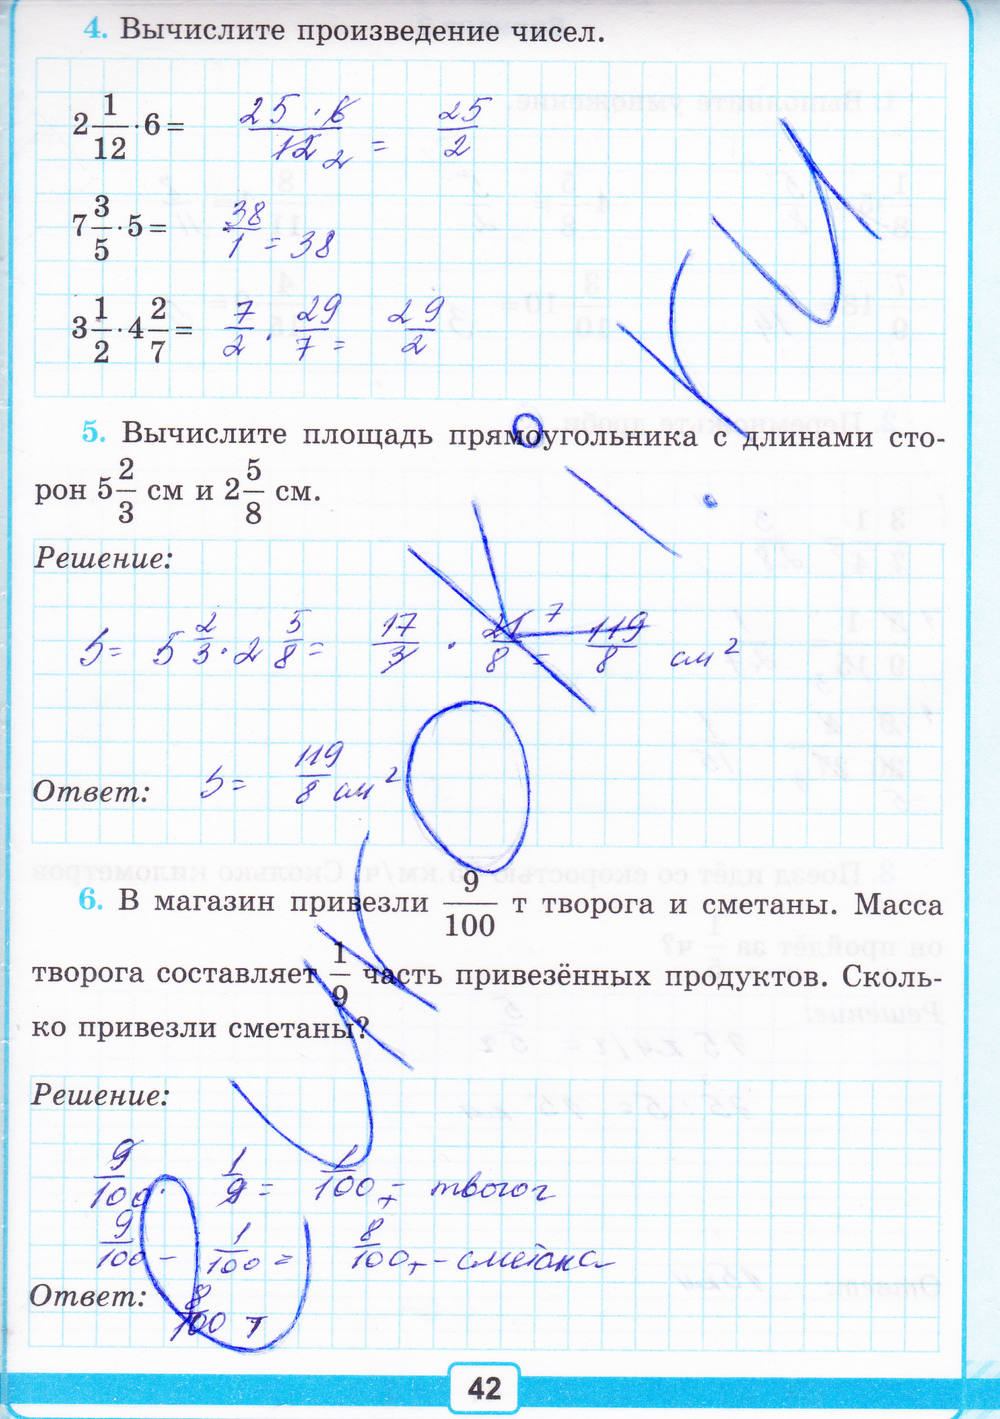 4. Вычислите произведение чисел.
2 1/12 · 6 = 25 · 6 / 12 2 = 25/2
7 3/5 · 5 = 38/1 = 38
3 1/2 · 4 2/7 = 7/2 · 29/7 = 29/2
5. Вычислите площадь прямоугольника с длинами сто-
рон 5 2/3 см и 2 5/8 см.
Решение:
S = 5 2/3 · 2 5/8 = 17/3 · 21 7/8 = 119/8 см²
Ответ: S = 119/8 см²
6. В магазин привезли 9/100 т творога и сметаны. Масса
творога составляет 1/9 часть привезённых продуктов. Сколь-
ко привезли сметаны?
Решение:
9/100 · 1/9 = 1/100 т - творог
9/100 - 1/100 = 8/100 т - сметана
Ответ: 8/100 т
42